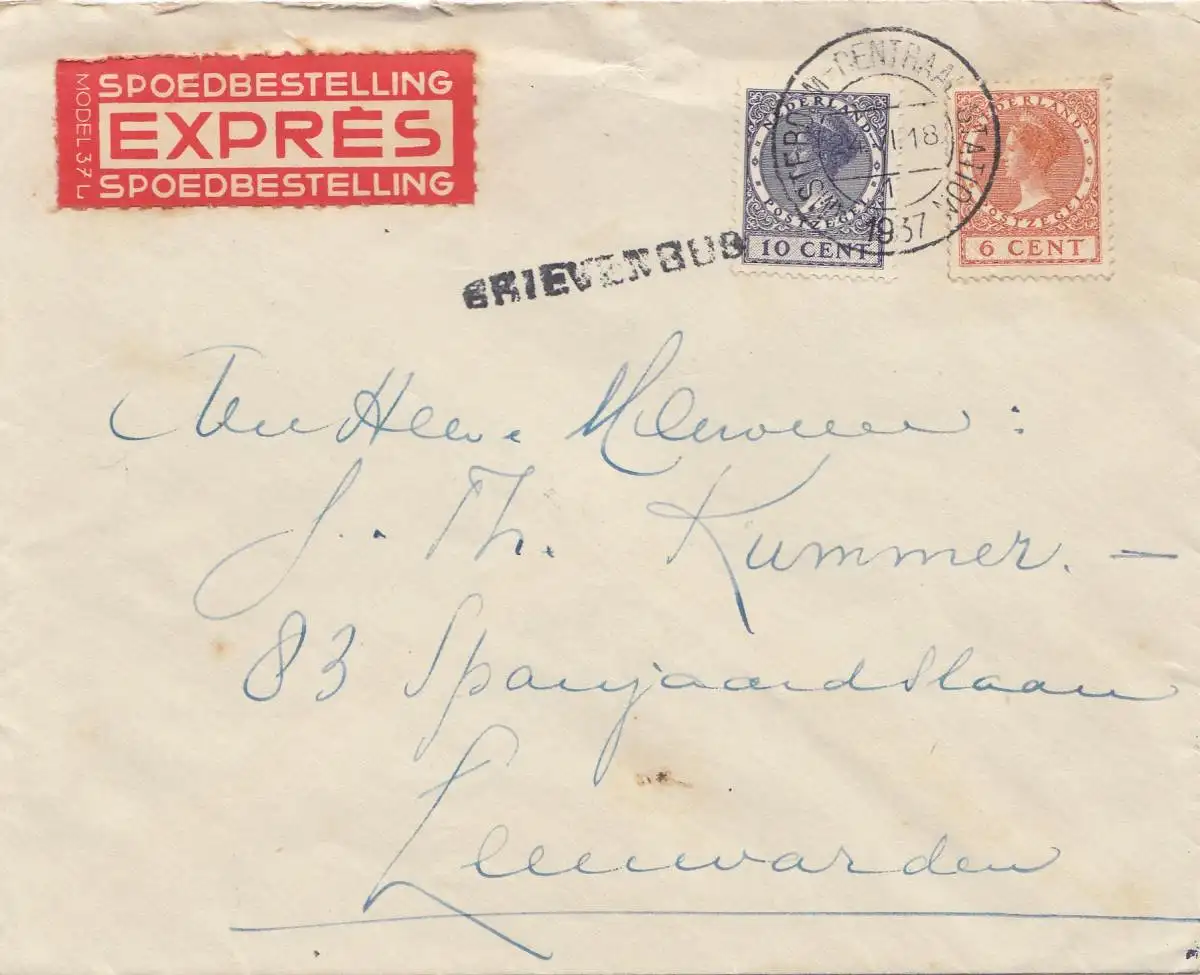 MODEL 37L
SPOEDBESTELLING
EXPRÈS
SPOEDBESTELLING
AMSTERDAM-CENTRAAL STATION
1937
NEDERLAND
POSTZEGEL
10 CENT
NEDERLAND
POSTZEGEL
6 CENT
BRIEVENBUS
Den Heer. Mevrouw:
J. Th. Kummer. —
83 Spanjaardslaan
Leeuwarden